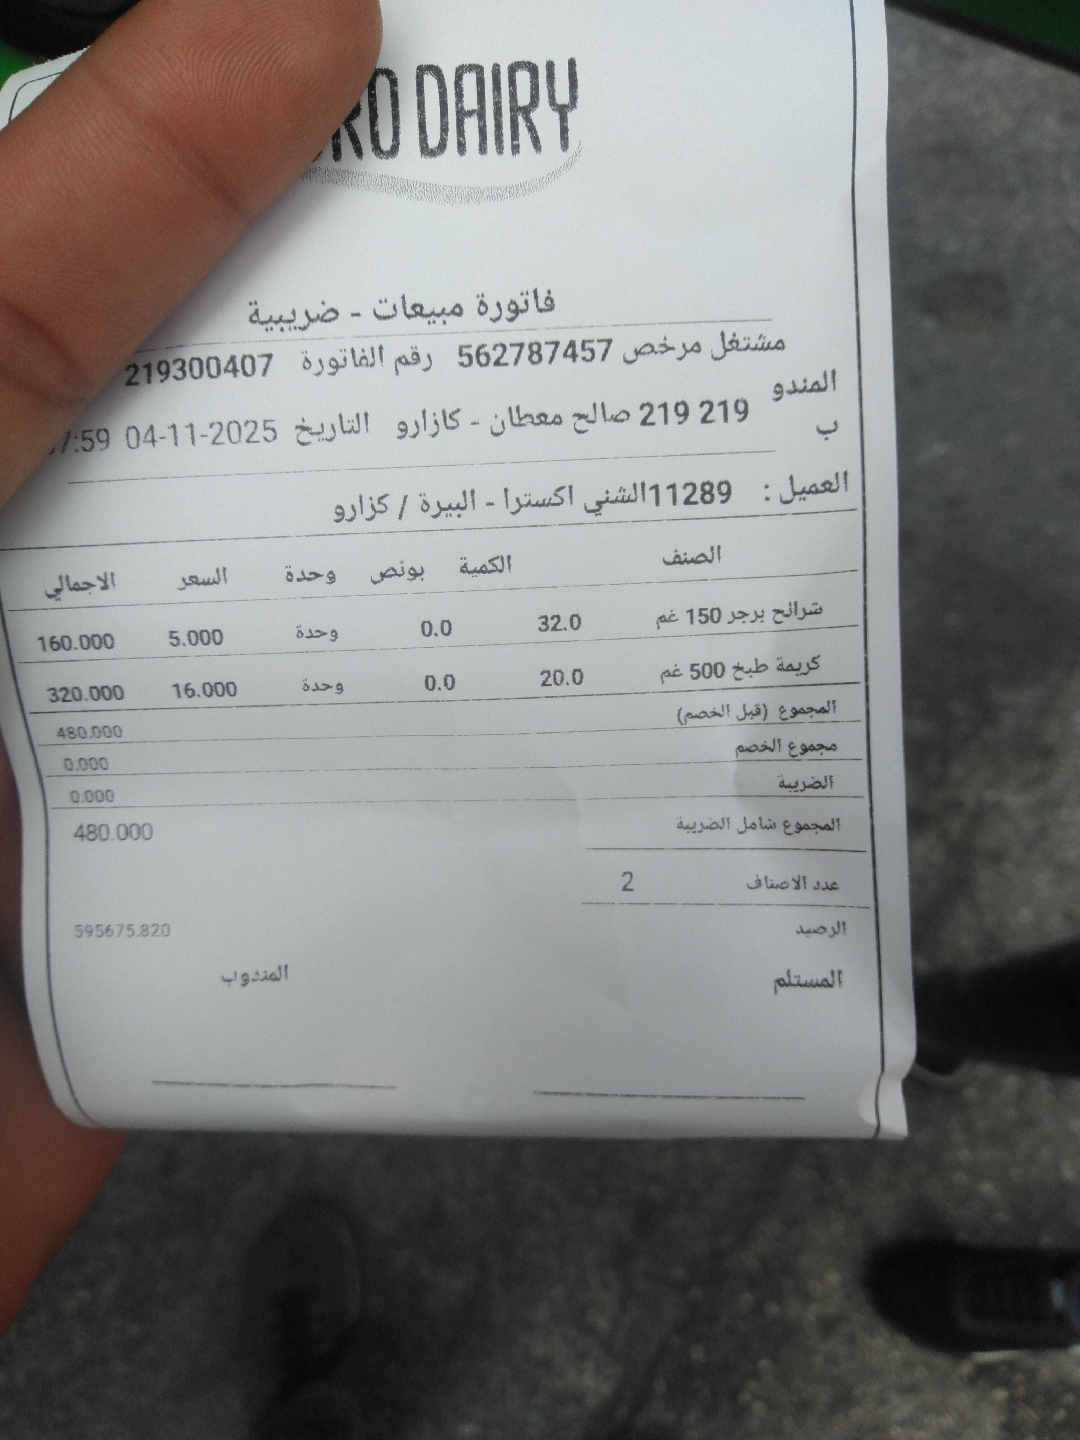 DAIRY
فاتورة مبيعات - ضريبية
مشتغل مرخص 562787457 رقم الفاتورة 219300407
المندوب 219 219 صالح معطان - كازارو التاريخ 04-11-2025 7:59
العميل : 11289الشني اكسترا - البيرة / كزارو
الصنف الكمية بونص وحدة السعر الاجمالي
شرائح برجر 150 غم 32.0 0.0 وحدة 5.000 160.000
كريمة طبخ 500 غم 20.0 0.0 وحدة 16.000 320.000
المجموع (قبل الخصم) 480.000
مجموع الخصم 0.000
الضريبة 0.000
المجموع شامل الضريبة 480.000
عدد الاصناف 2
الرصيد 595675.820
المستلم المندوب